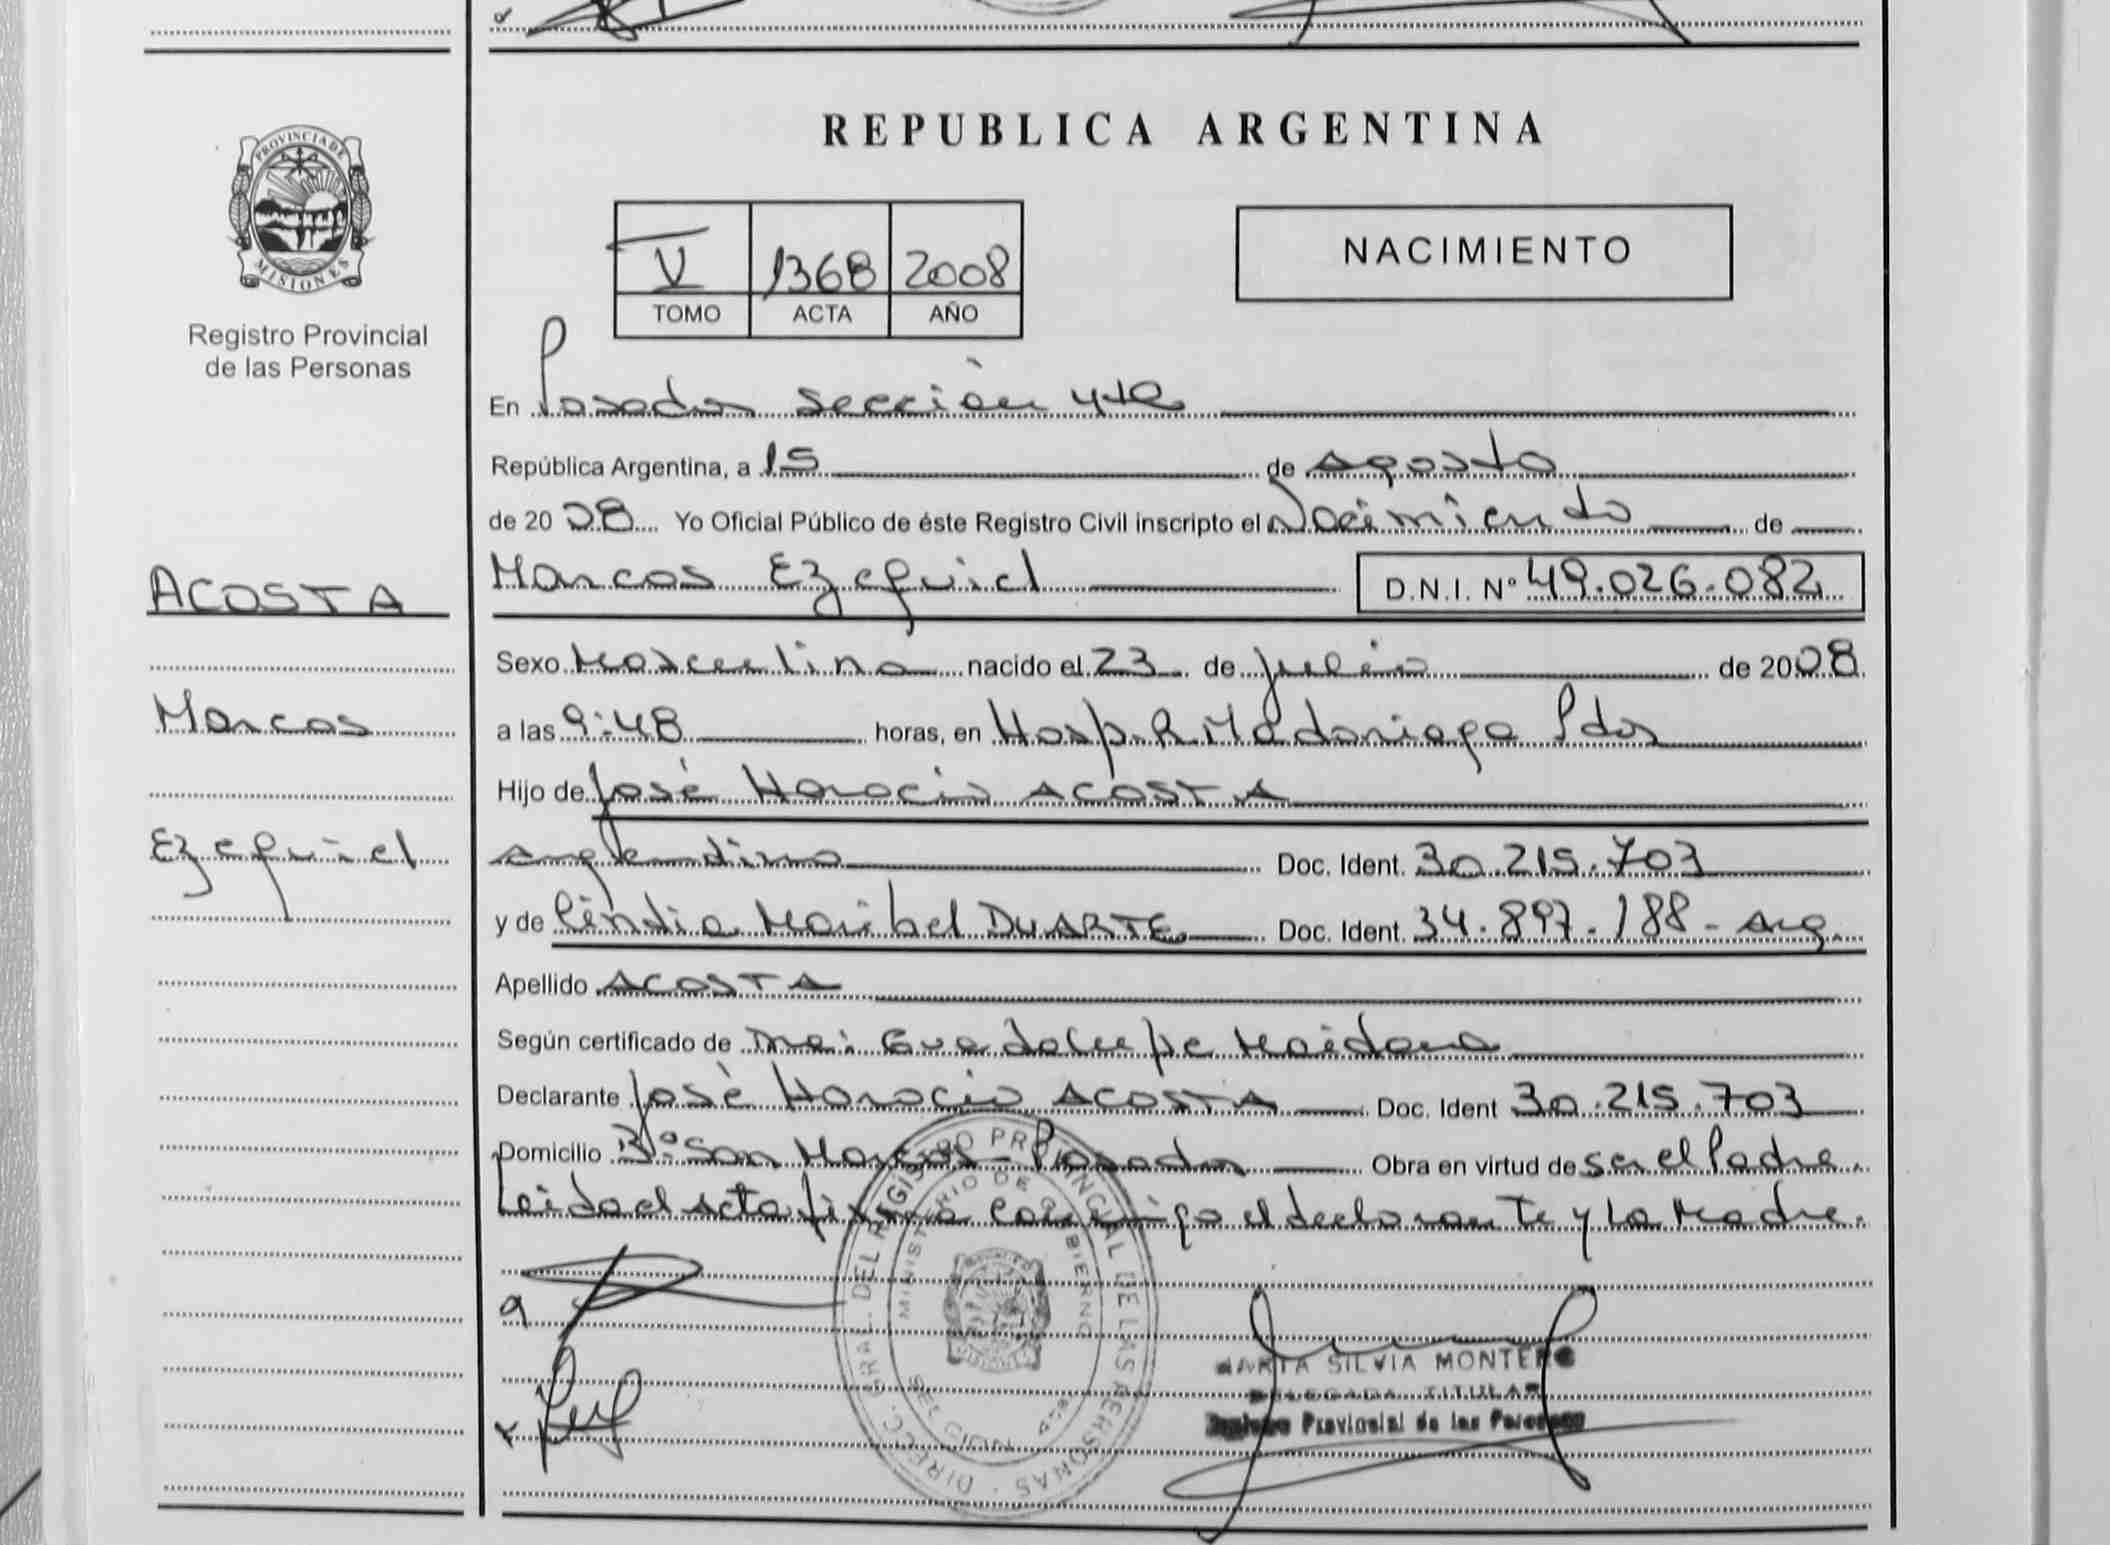 PROVINCIA DE
MISIONES
Registro Provincial
de las Personas
ACOSTA
Marcos
Ezequiel
REPUBLICA ARGENTINA
V 1368 2008
TOMO ACTA AÑO
NACIMIENTO
En Posadas sección 4ta
República Argentina, a 15 de Agosto
de 2008 Yo Oficial Público de éste Registro Civil inscripto el Nacimiento de
Marcos Ezequiel D.N.I. Nº 49.026.082
Sexo Masculino nacido el 23 de julio de 2008
a las 9:48 horas, en Hosp. R. Madariaga Pdas
Hijo de José Horacio ACOSTA
Argentino Doc. Ident. 30.215.703
y de Cindia Maribel DUARTE Doc. Ident. 34.897.188 - Arg.
Apellido ACOSTA
Según certificado de Dra: Guadalupe Maidana
Declarante José Horacio ACOSTA Doc. Ident 30.215.703
Domicilio Bº San Marcos - Posadas Obra en virtud de ser el Padre.
Leida el acta firma conmigo el declarante y la Madre.
DIREC. GRAL. DEL REGISTRO PROVINCIAL DE LAS PERSONAS
MINISTERIO DE GOBIERNO
MARTA SILVIA MONTERO
DELEGADA TITULAR
Registro Provincial de las Personas